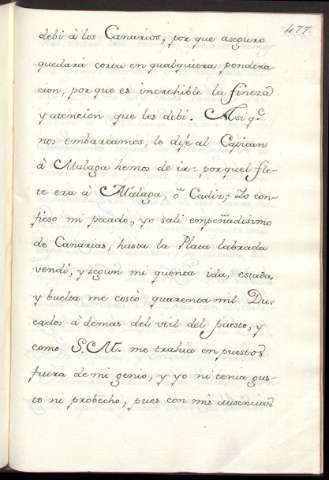 477
debi à los Canarios, por que aseguro
quedarà corta en qualquiera pondera
cion, por que es increhible la fineza
y atencion que les debi. Asi q.e
nos embarcamos, le dije al Capitan
à Malaga hemos de ir: porque el fle-
te era à Malaga, ò Cadiz; Yo con-
fieso mi pecado, yo sali empeñadisimo
de Canarias, hasta la Plata labrada
vendi, y segun mi quenta ida, estada,
y buelta me costò quarenta mil Du-
cados à demas del util del puesto, y
como S. M. me trahia en puestos
fuera de mi genio, y yo ni tenia gus-
to ni probecho, pues con mis ausencias